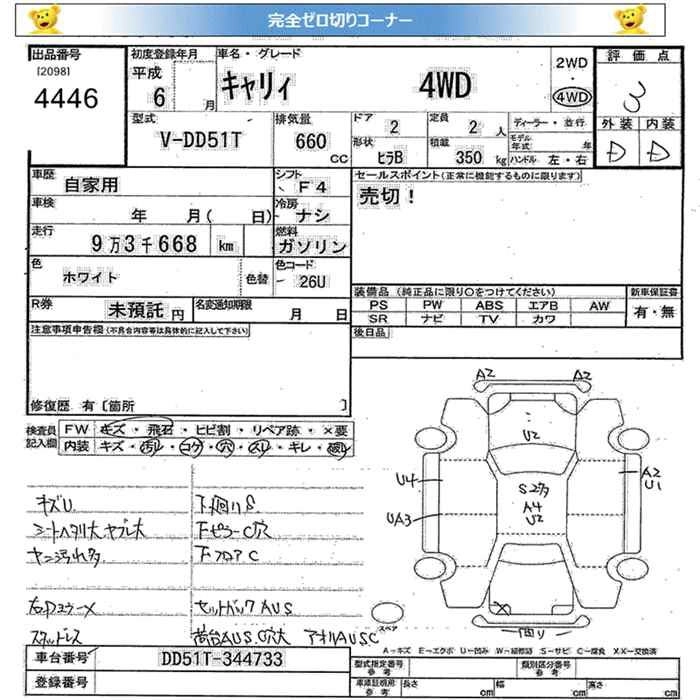 完全ゼロ切りコーナー
出品番号
[2098]
4446
初度登録年月
平成
6 月
車名・グレード
キャリィ 4WD
2WD
・
4WD
評価点
3
外装 内装
D D
型式
V-DD51T
排気量
660
CC
ドア 2
形状 ヒラB
定員 2 人
積載 350 kg
ディーラー・並行
モデル年式 年
ハンドル 左・右
車歴
自家用
シフト
F4
車検
年 月( 日)
冷房
ナシ
走行
9万3千668 km
燃料
ガソリン
色
ホワイト
色替
色コード
26U
R券
未預託 円
名変通知期限
月 日
セールスポイント(正常に機能するものに限ります)
売切!
装備品 (純正品に限り○をつけてください)
PS PW ABS エアB AW
SR ナビ TV カワ
新車保証書
有・無
後日品
注意事項申告欄(不具合内容等は具体的に記入して下さい)
修復歴 有[箇所 ]
検査員記入欄
FW キズ・飛石・ヒビ割・リペア跡・×要
内装 キズ・汚レ・コゲ・穴・スレ・キレ・破レ
キズU
下廻りS
シートヘタリ大ヤブレ大
FピラーC穴
ヤニ汚れ多
FフロアC
セットバックAUS
スタッドレス
荷台AUSC穴大
A2 A2
U2
U4
A2
U1
S2多
A4
U2
UA3
スペア
A-キズ E-エクボ U-凹み W-補修跡 S-サビ C-腐食 XX-交換済
車台番号
DD51T-344733
登録番号
型式指定番号
参考
類別区分番号
参考
車庫証明用
参考
長さ cm 幅 cm 高さ cm